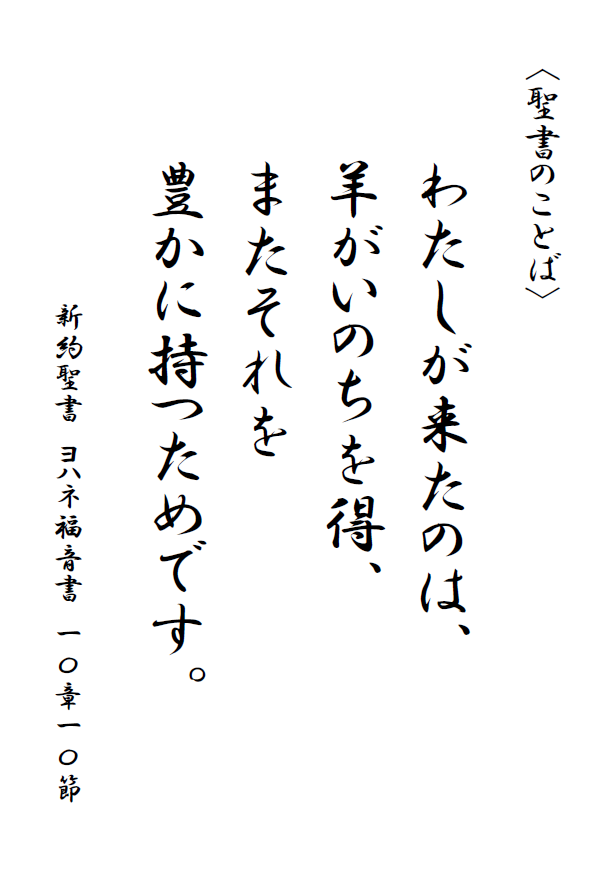 〈聖書のことば〉
わたしが来たのは、
羊がいのちを得、
またそれを
豊かに持つためです。
新約聖書 ヨハネ福音書 一〇章一〇節